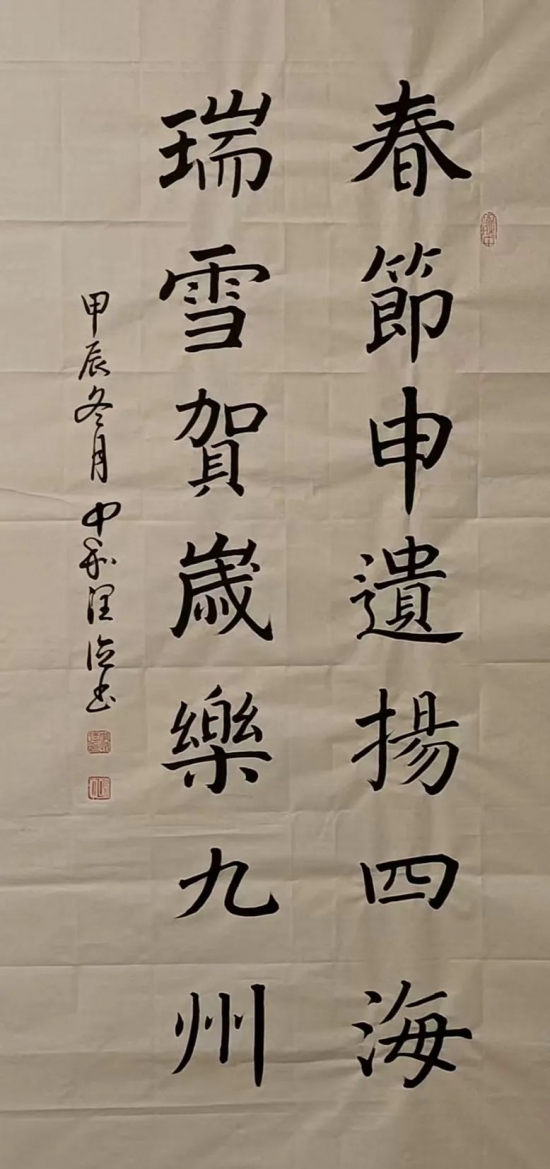 春節申遺揚四海
瑞雪賀歲樂九州
甲辰冬月中和 書